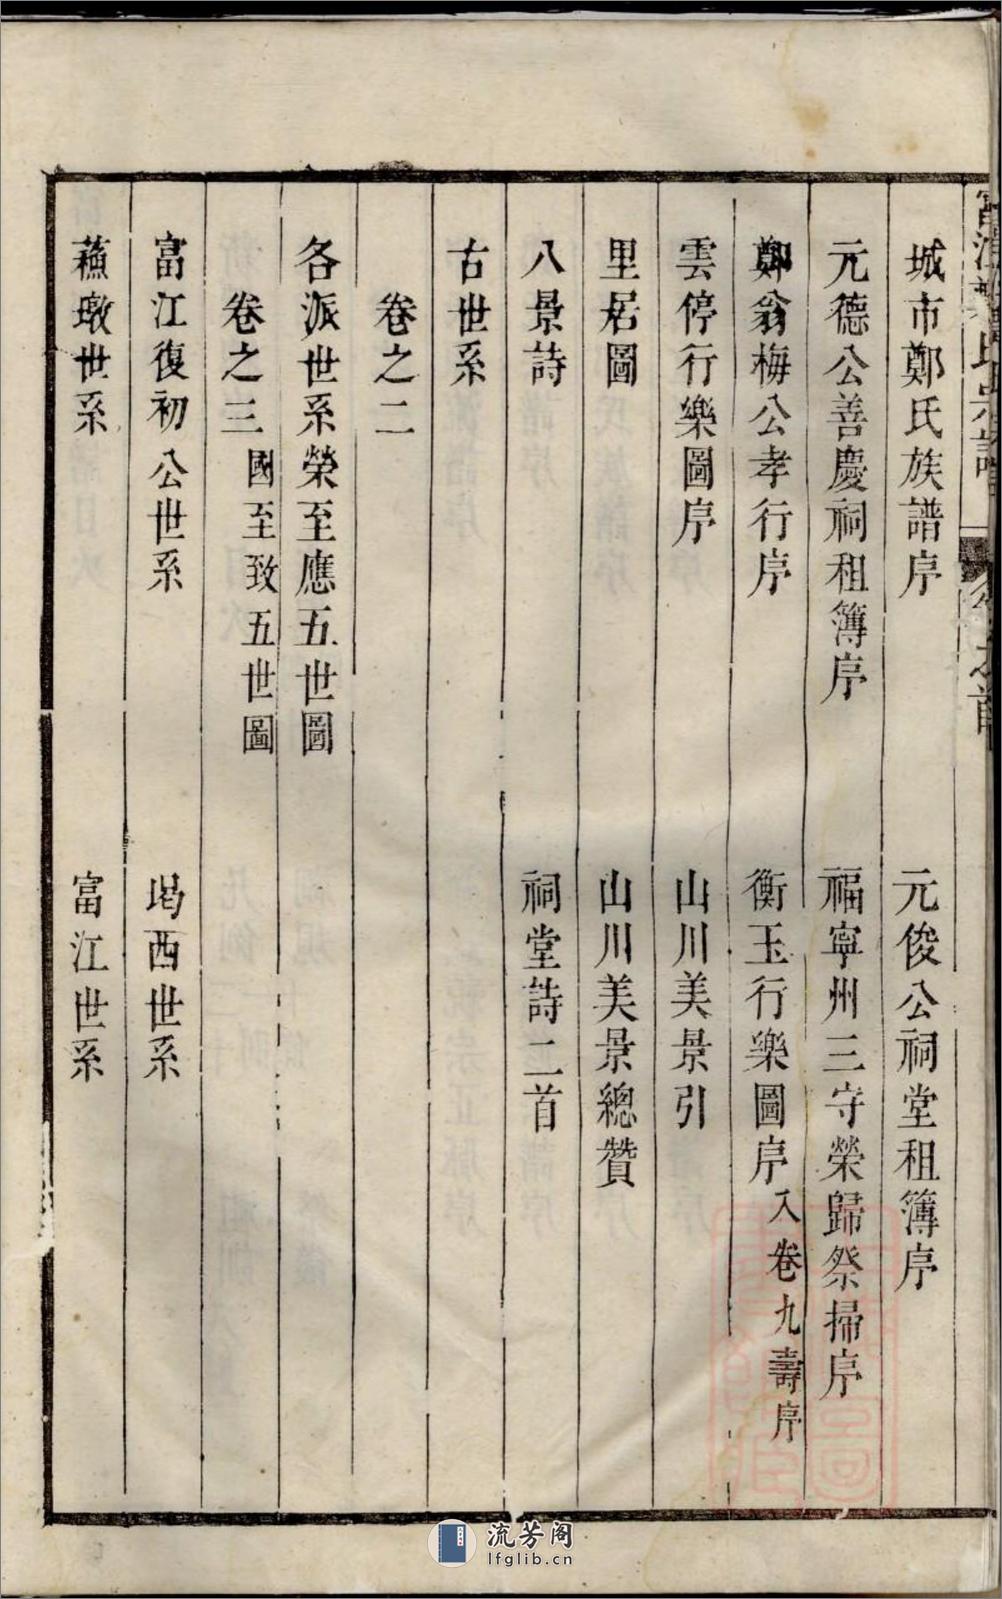 城市鄭氏族譜序　元俊公祠堂租簿序
元德公善慶祠租簿序　福寧州三守榮歸祭掃序
鄭翁梅公孝行序　衡玉行樂圖序入卷九壽序
雲停行樂圖序　山川美景引
里居圖　山川美景總贊
八景詩　祠堂詩二首
古世系
卷之二
各派世系榮至應五世圖
卷之三國至致五世圖
富江復初公世系　堨西世系
蘓墩世系　富江世系
流芳阁
lfglib.cn